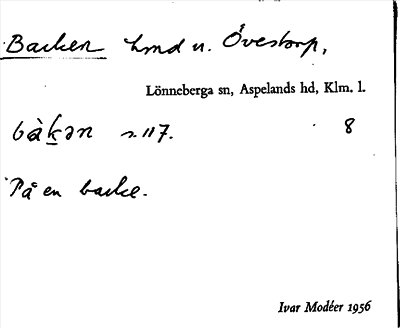 Backen hmd u. Övestorp,
Lönneberga sn, Aspelands hd, Klm. l.
bàḵən s. 117. 8
På en backe.
Ivar Modéer 1956